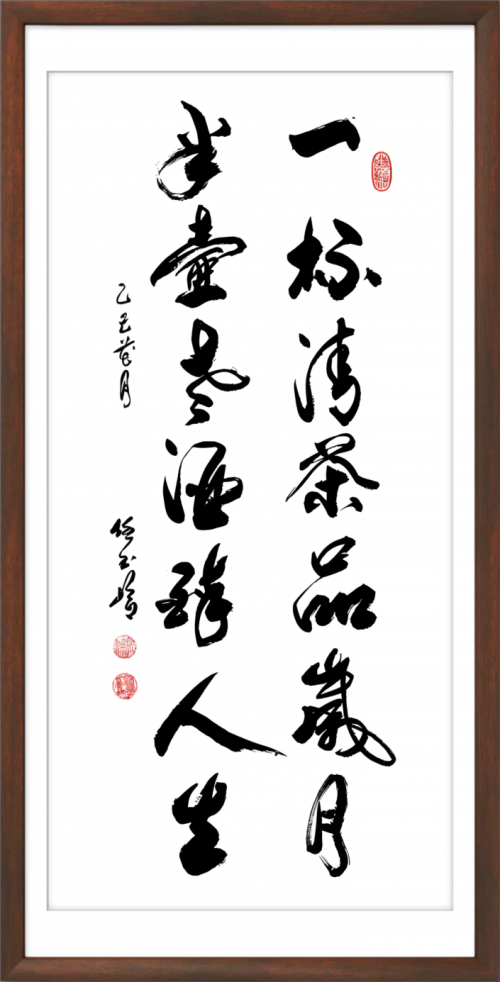 一杯清茶品歲月
半壺老酒醉人生
乙丑月
任玉岭